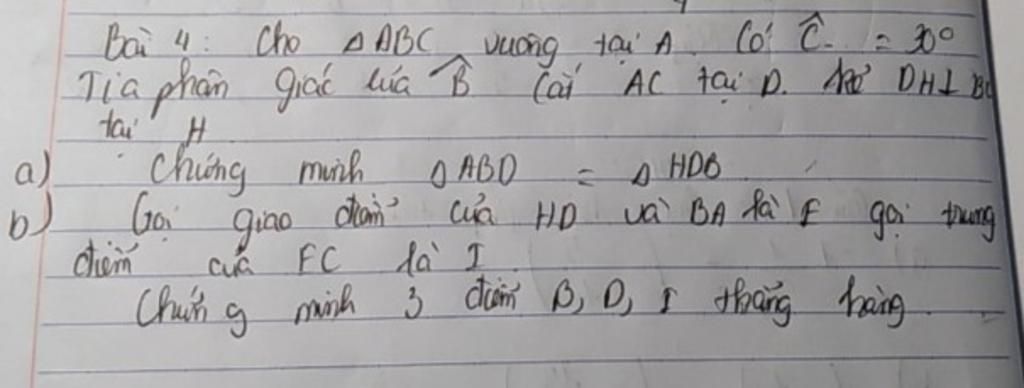 Bài 4: Cho △ABC vuông tại A. Có Ĉ = 30°
Tia phân giác của B̂ Cắt AC tại D. kẻ DH⊥BC
tại H
a) Chứng minh △ABD = △HDB
b) Gọi giao điểm của HD và BA là F gọi trung
điểm của FC là I
Chứng minh 3 điểm B, D, I thẳng hàng.